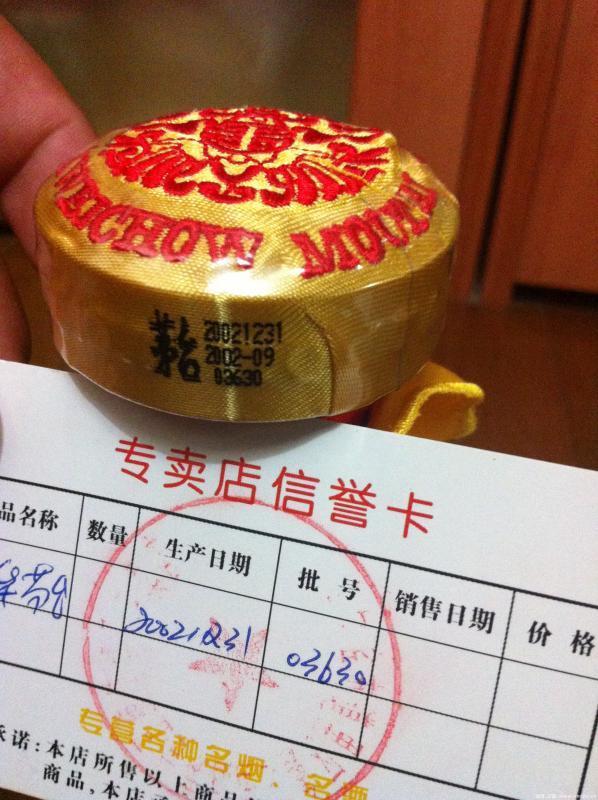 WEICHOW MOUTAI
茅台 20021231
2002-09
03630
专卖店信誉卡
品名称 数量 生产日期 批号 销售日期 价格
20021231 03630
专营各种名烟、名酒
承诺:本店所售以上商品
商品,本店